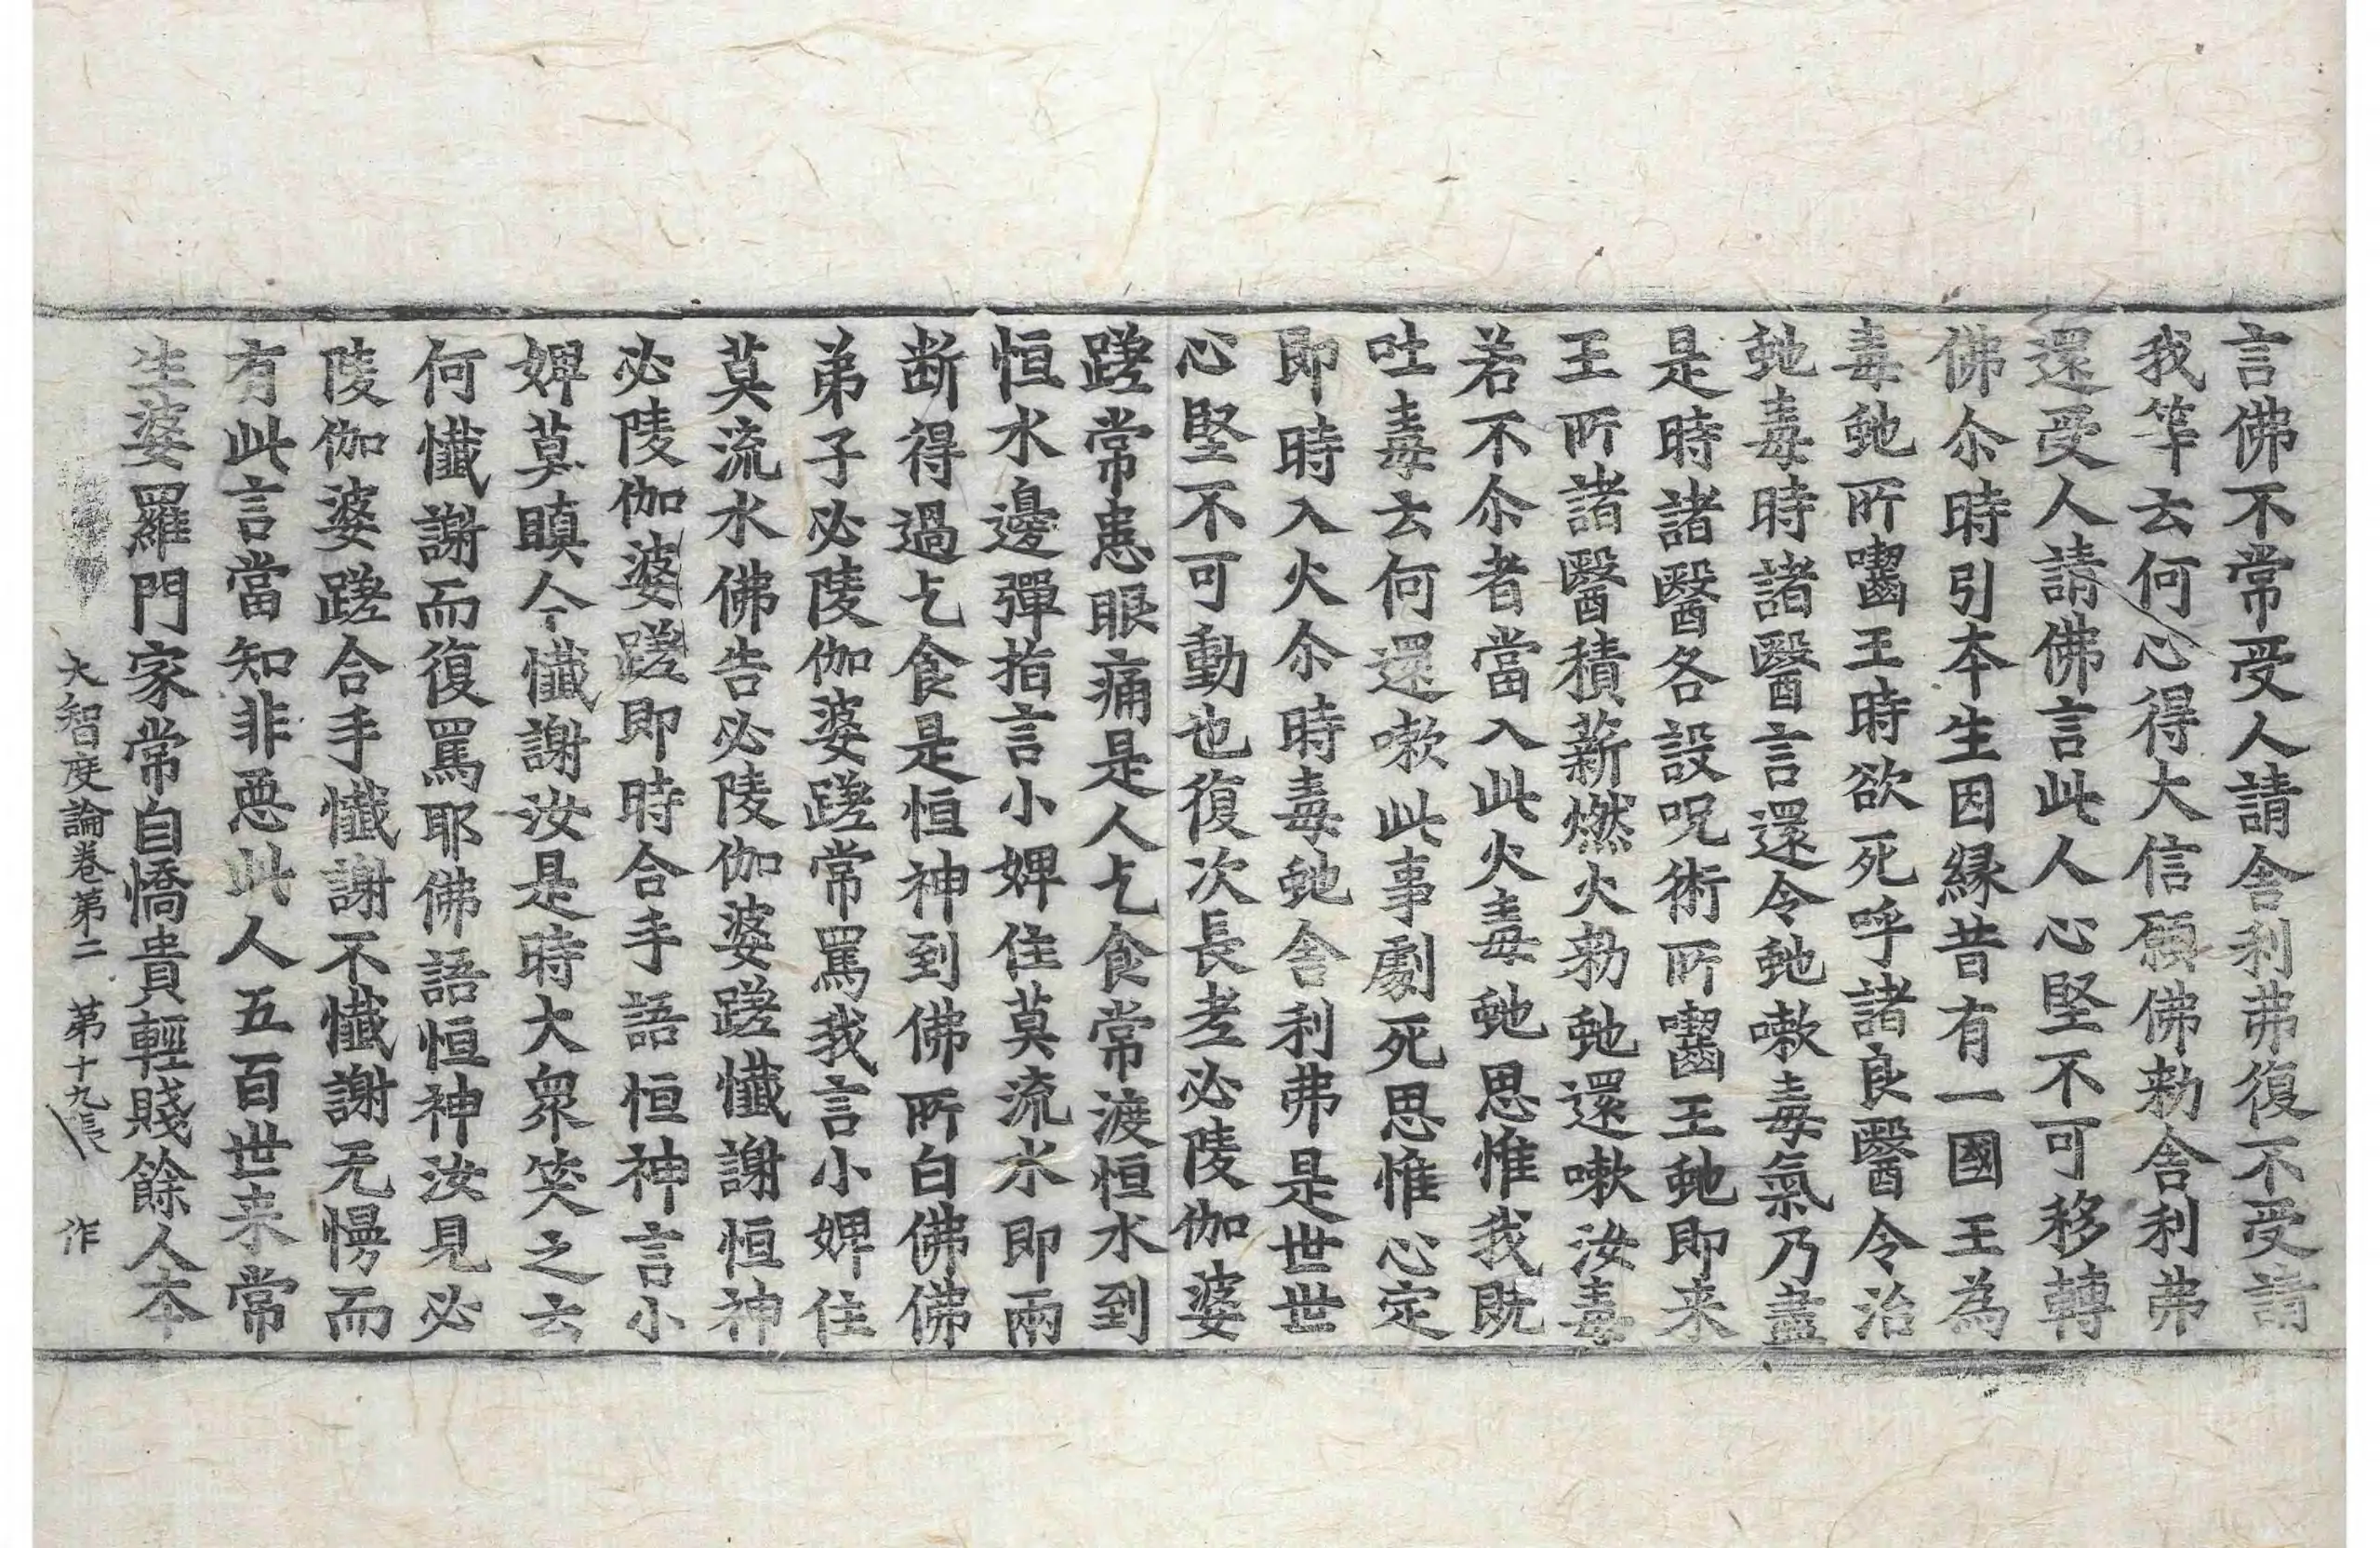 言佛不常受人請舎利弗復不受請
我䓁云何心得大信願佛勑舎利弗
還受人請佛言此人心堅不可移轉
佛尒時引本生因縁昔有一國王為
毒虵所囓王時欲死呼諸良醫令治
虵毒時諸醫言還令虵嗽毒氣乃盡
是時諸醫各設呪術所囓王虵即来
王所諸醫積薪燃火勑虵還嗽汝毒
若不尒者當入此火毒虵思惟我旣
吐毒去何還嗽此事劇死思惟心定
即時入火尒時毒虵舎利弗是世世
心堅不可動也復次長老必陵伽婆
蹉常患眼痛是人乞食常渡恒水到
恒水邊彈指言小婢住莫流水即兩
断得過乞食是恒神到佛所白佛佛
弟子必陵伽婆蹉常罵我言小婢住
莫流水佛告必陵伽婆蹉懴謝恒神
必陵伽婆蹉即時合手語恒神言小
婢莫瞋今懴謝汝是時大衆笑之云
何懴謝而復罵耶佛語恒神汝見必
陵伽婆蹉合手懴謝不懴謝无慢而
有此言當知非惡此人五百世来常
生婆羅門家常自憍貴輕賤餘人本
大智度論卷第二 第十九張 作